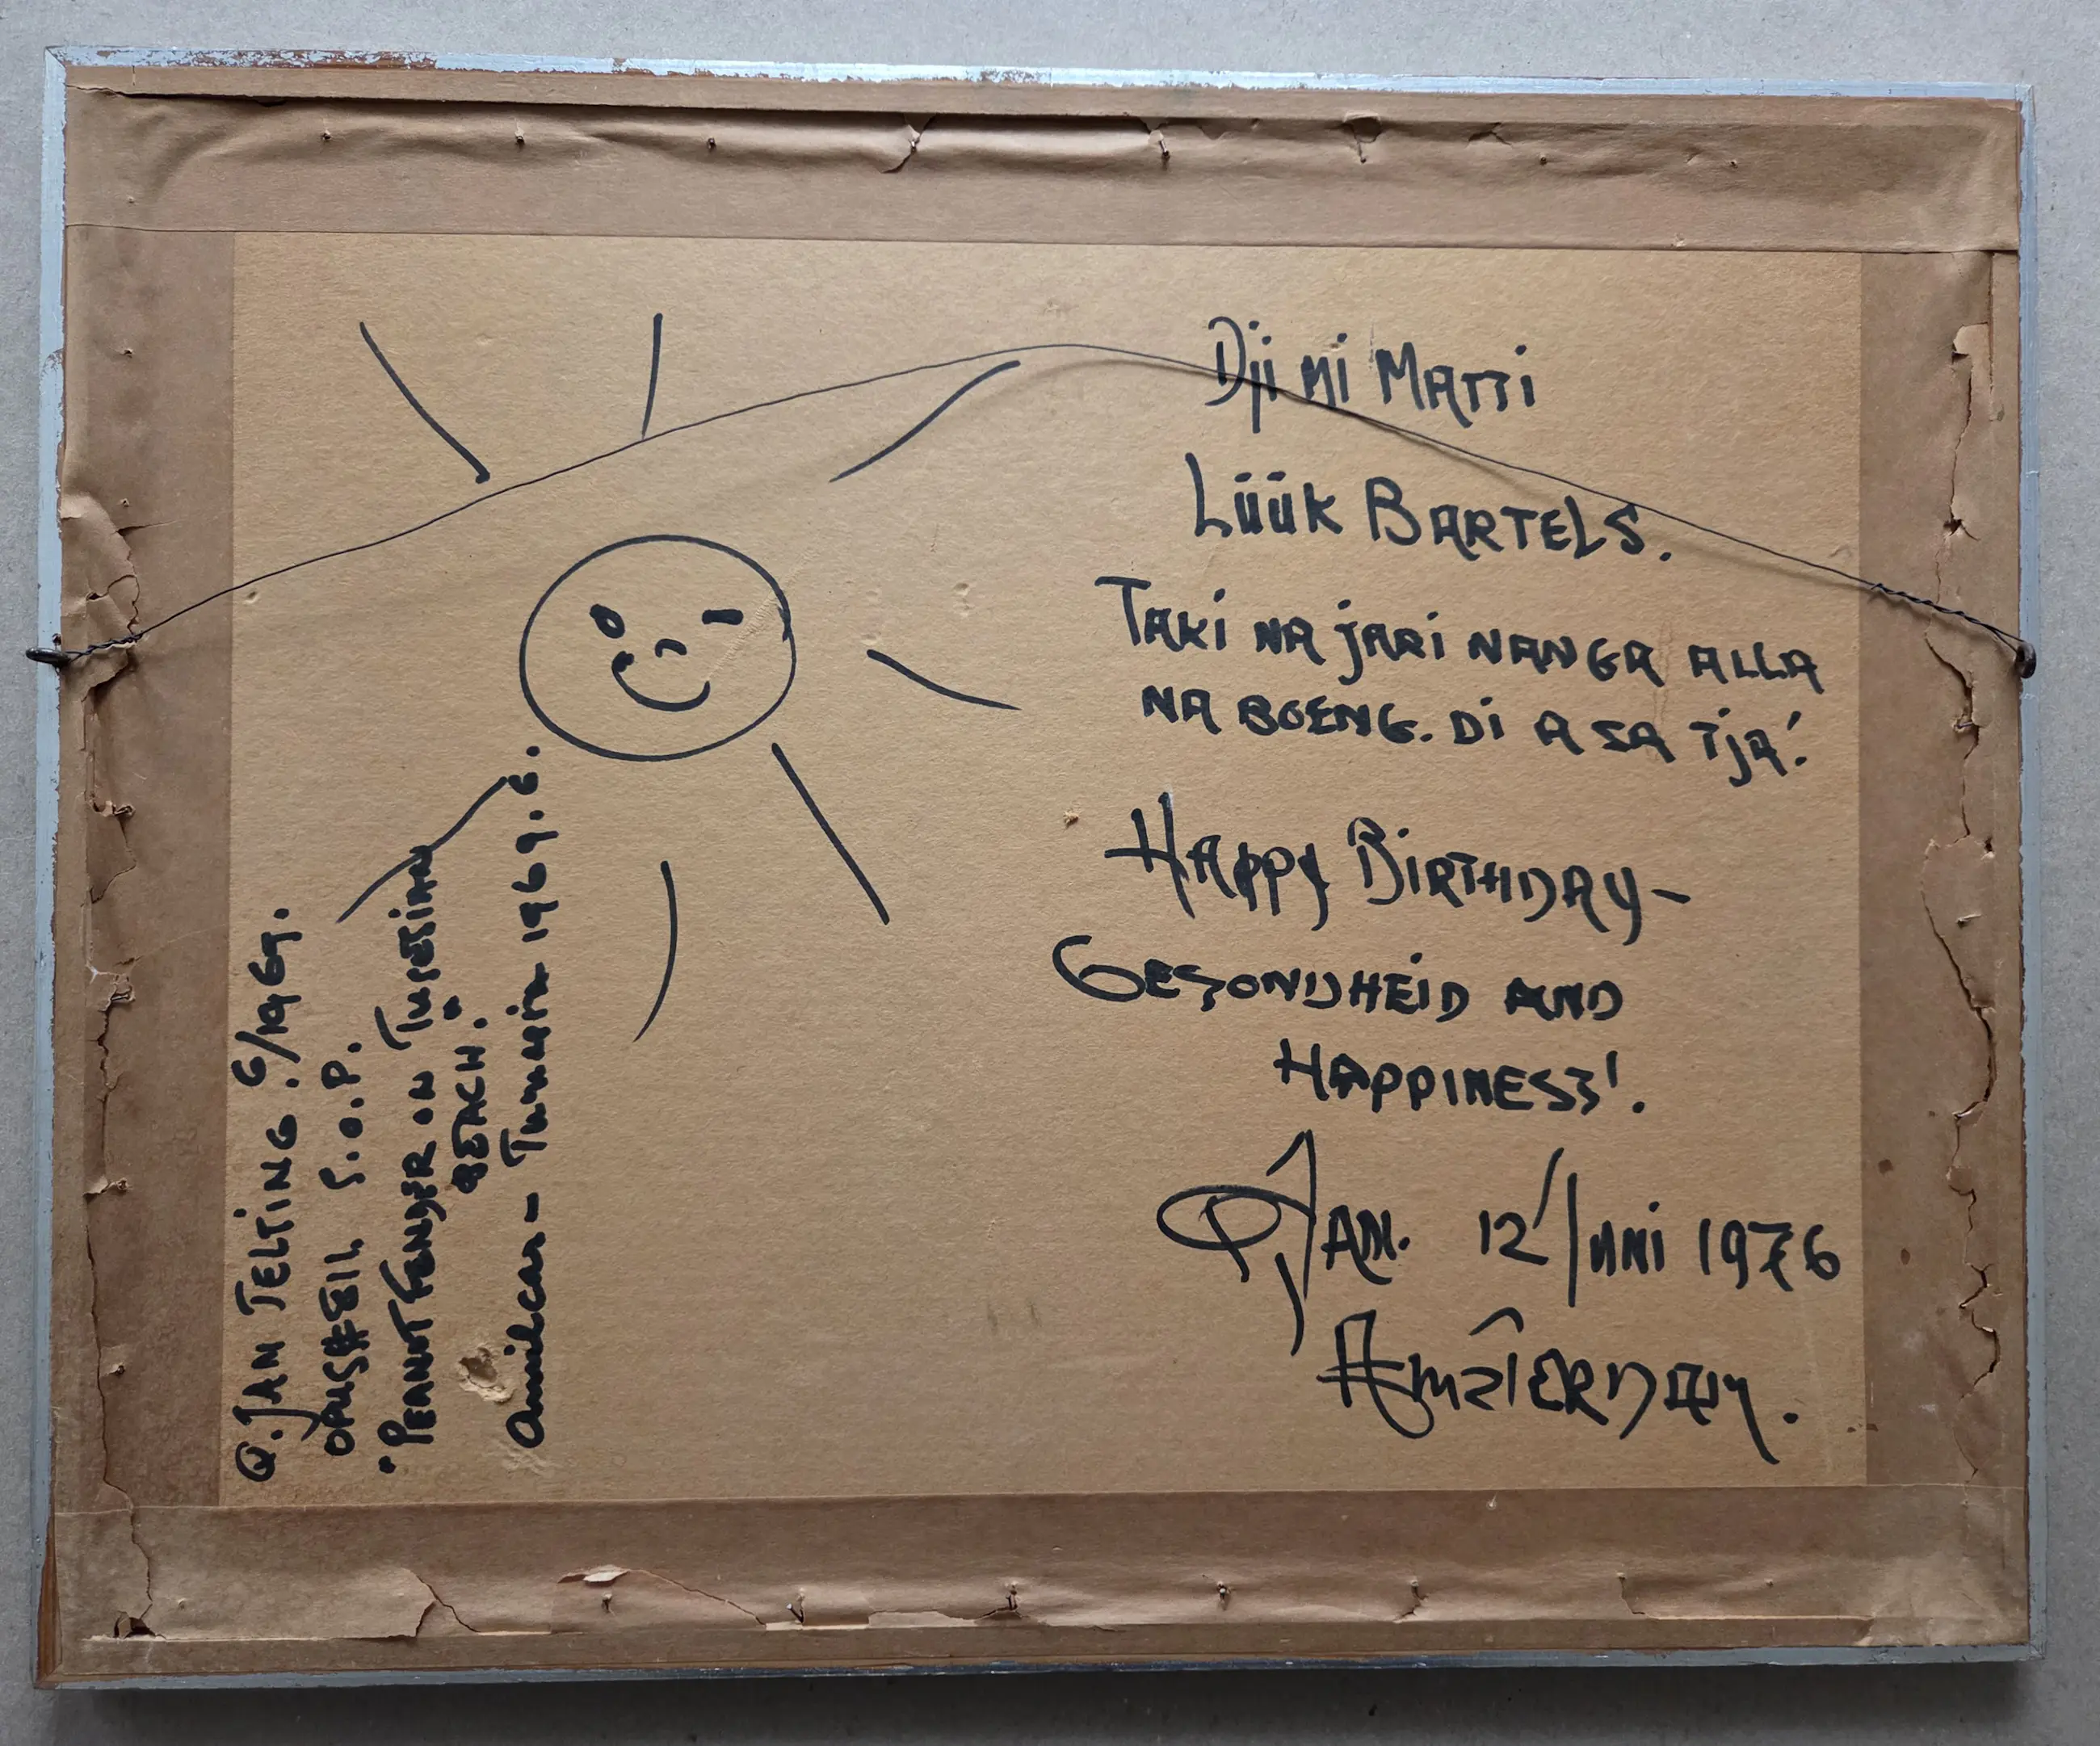 Dji mi MATTI
LÜÜK BARTELS.
TAKI NA JARI NANGA ALLA
NA BOENG. Di A SA TJA!
HAPPY BIRTHDAY-
GESONDHEID AND
HAPPINESS!.
Q JAN. 12/JUNI 1976
AMSTERDAM.
Q. JAN TELTING. 6/1969.
OPUS # 811. S.O.P.
"PEANUT FENDER ON TUNESIAN
BEACH."
Amilcar - Tunasia 1969. G.